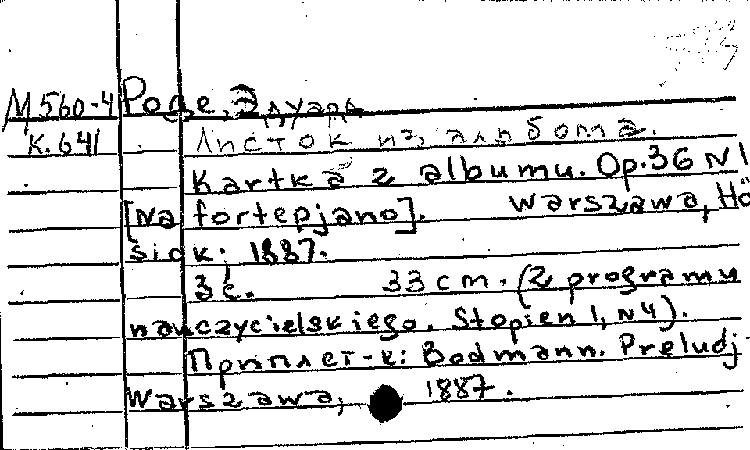 М 560-4 Роде, Эдуард
К. 641 Листок из альбома.
Kartka z albumu. Op. 36 N 1
[Na fortepjano]. Warszawa, Hö
sick; 1887.
3 с. 33 cm. (z programu
nauczycielskiego. Stopien 1, N 4).
Приплет-к: Bodmann. Preludj
Warszawa, 1887.